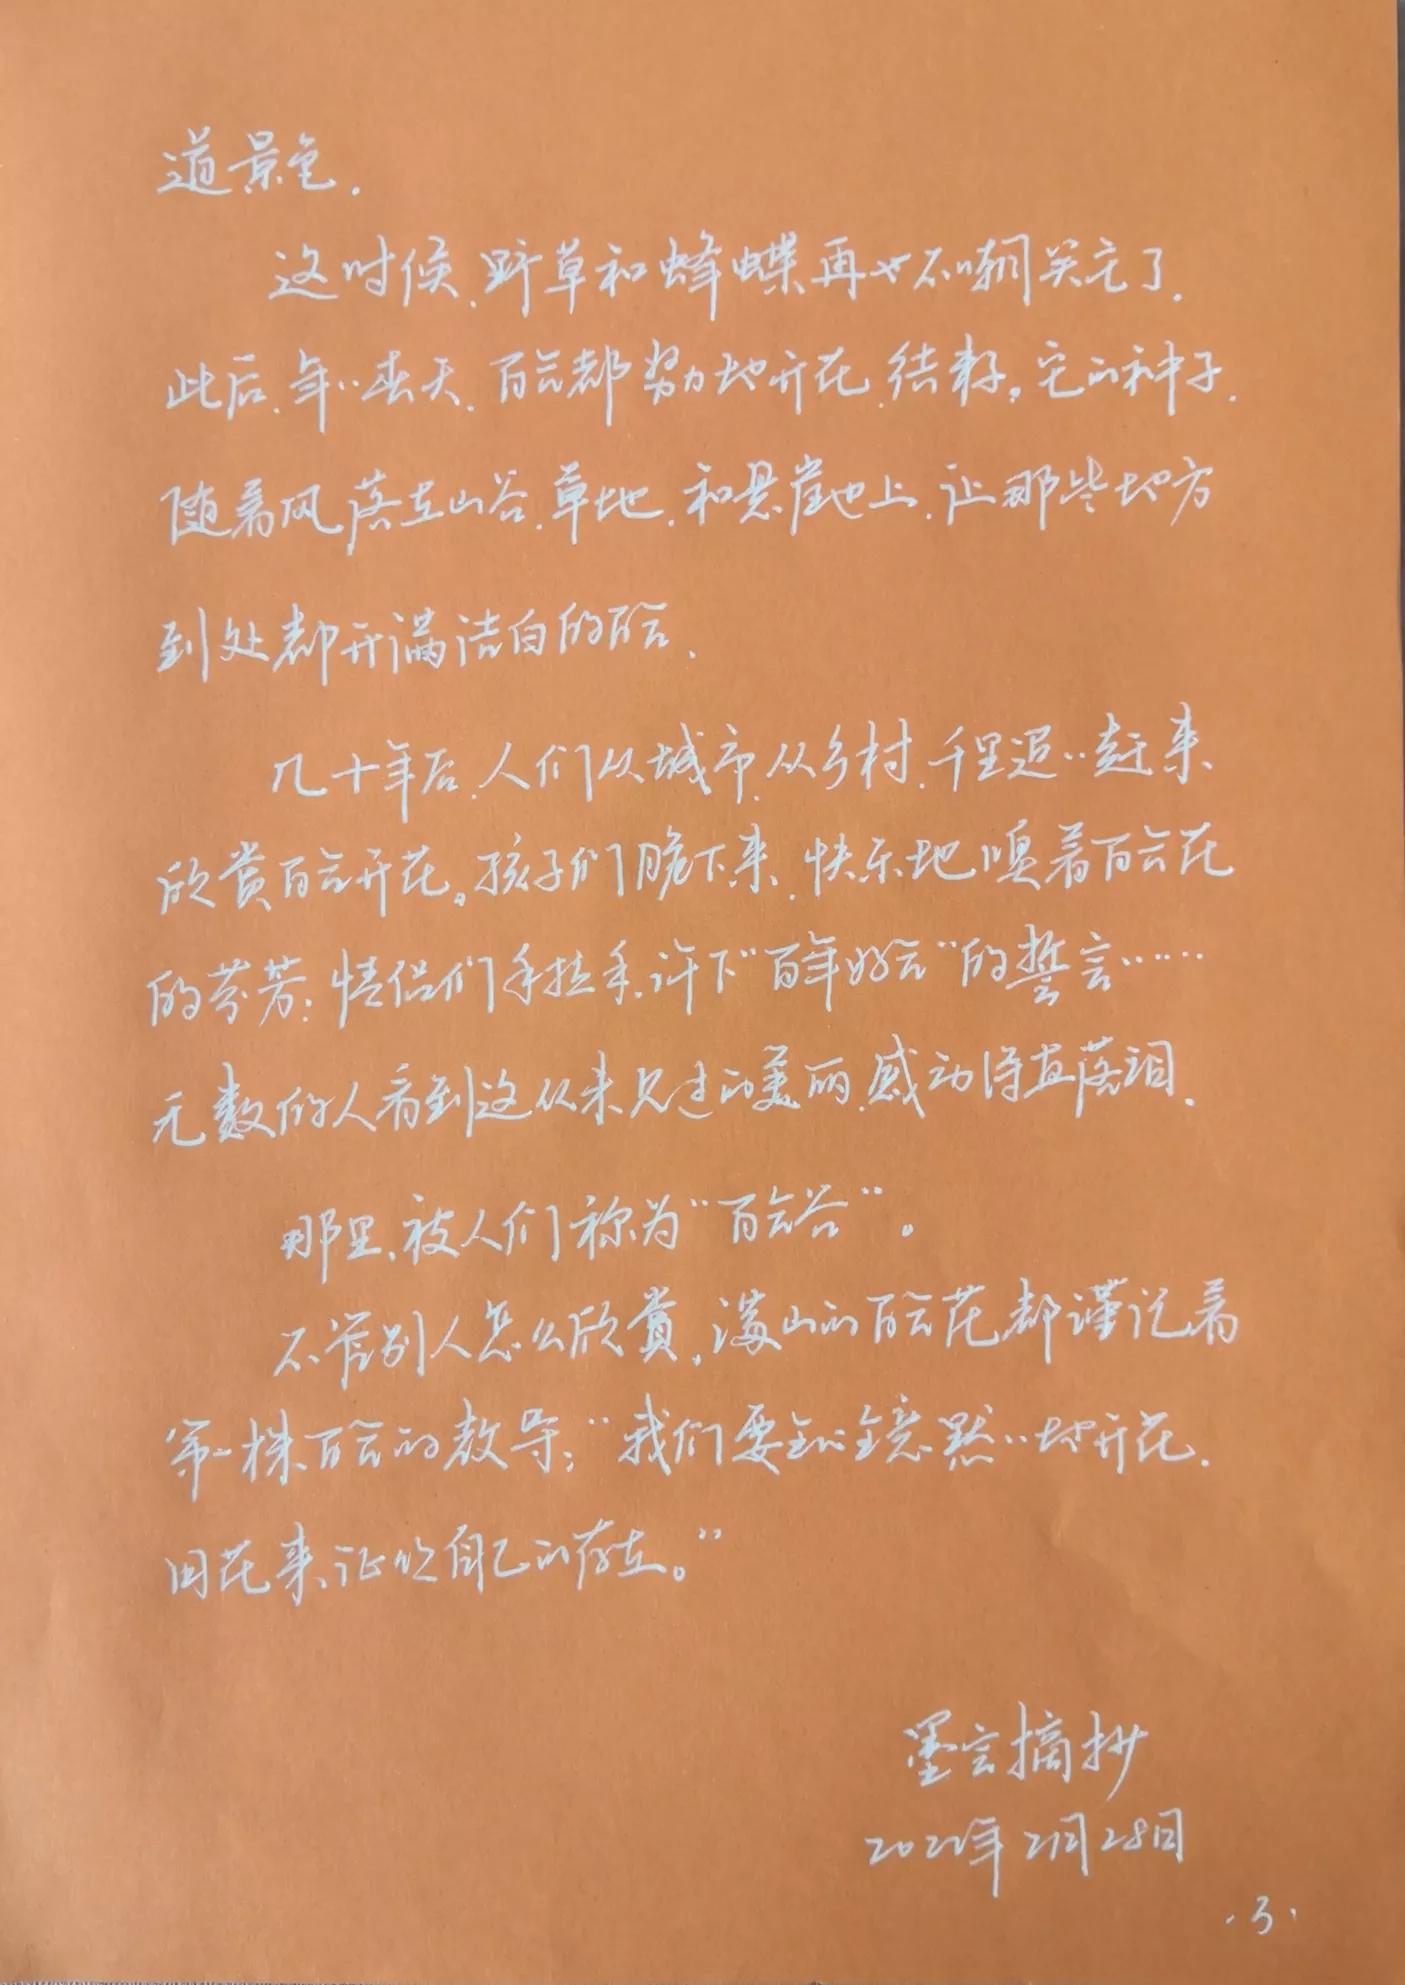 道景色.
这时候,野草和蜂蝶再也不嘲笑它了.
此后,年〃春天,百合都努力地开花,结籽。它的种子,
随着风,落在山谷,草地,和悬崖边上,让那些地方
到处都开满洁白的百合.
几十年后,人们从城市,从乡村,千里迢〃赶来
欣赏百合开花。孩子们跪下来,快乐地嗅着百合花
的芬芳;情侣们手拉手,许下“百年好合”的誓言……
无数的人看到这从未见过的美丽,感动得直落泪.
那里,被人们称为“百合谷”。
不管别人怎么欣赏,满山的百合花都谨记着
第一株百合的教导:“我们要全心全意默〃地开花,
用花来证明自己的存在。”
墨言摘抄
2022年2月28日
·3·